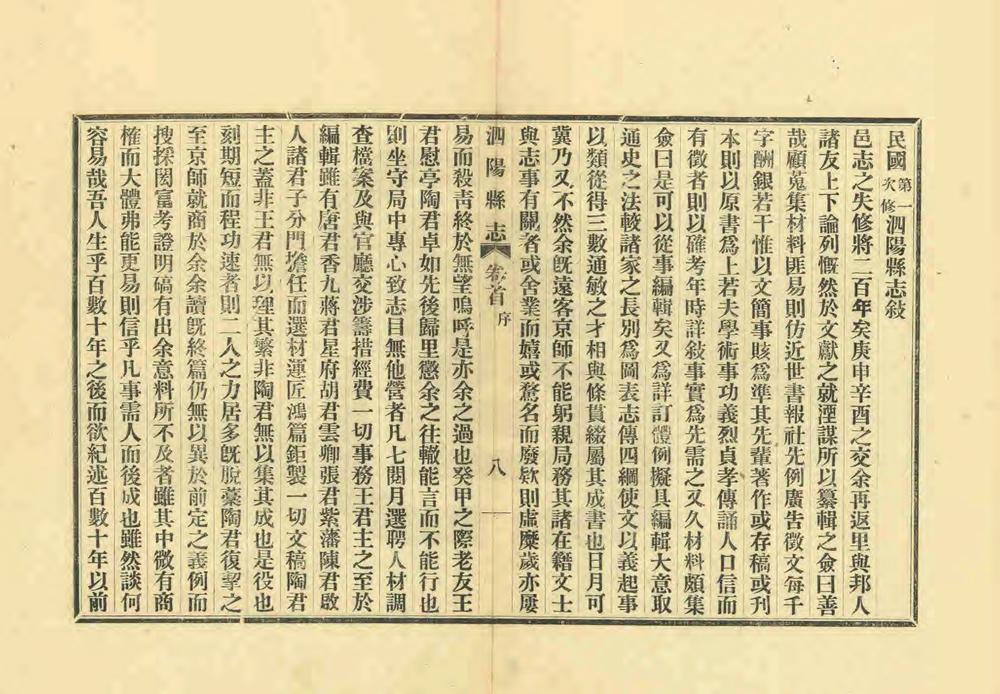 民國第一次修泗陽縣志敍
邑志之失修將二百年矣庚申辛酉之交余再返里與邦人
諸友上下論列慨然於文獻之就湮謀所以纂輯之僉曰善
哉顧蒐集材料匪易則仿近世書報社先例廣告徵文每千
字酬銀若干惟以文簡事賅爲準其先輩著作或存稿或刊
本則以原書爲上若夫學術事功義烈貞孝傳誦人口信而
有徵者則以確考年時詳敍事實爲先需之又久材料頗集
僉曰是可以從事編輯矣又爲詳訂體例擬具編輯大意取
通史之法較諸家之長別爲圖表志傳四綱使文以義起事
以類從得三數通敏之才相與條貫綴屬其成書也日月可
冀乃又不然余旣遠客京師不能躬親局務其諸在籍文士
與志事有關者或舍業而嬉或騖名而廢欵則虛糜歲亦屢
泗陽縣志 卷首 序 八
易而殺靑終於無望嗚呼是亦余之過也癸甲之際老友王
君慰亭陶君卓如先後歸里懲余之往轍能言而不能行也
則坐守局中專心致志目無他營者凡七閱月選聘人材調
查檔案及與官廳交涉籌措經費一切事務王君主之至於
編輯雖有唐君香九蔣君星府胡君雲卿張君紫藩陳君啟
人諸君子分門擔任而選材運匠鴻篇鉅製一切文稿陶君
主之蓋非王君無以理其繁非陶君無以集其成也是役也
刻期短而程功速者則二人之力居多旣脫藁陶君復挈之
至京師就商於余余讀旣終篇仍無以異於前定之義例而
搜採閎富考證明碻有出余意料所不及者雖其中微有商
榷而大體弗能更易則信乎凡事需人而後成也雖然談何
容易哉吾人生乎百數十年之後而欲紀述百數十年以前